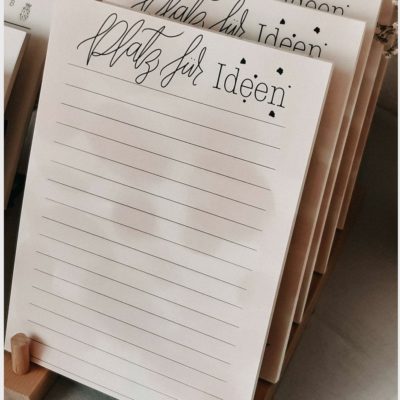 Platz für Ideen
Platz für Ideen
Ideen